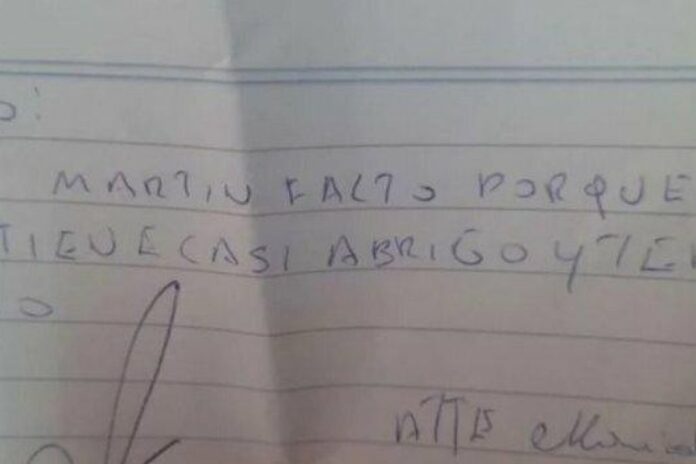 o:
MARTIN FALTO PORQUE
TIENE CASI ABRIGO Y TE
O
ATTE